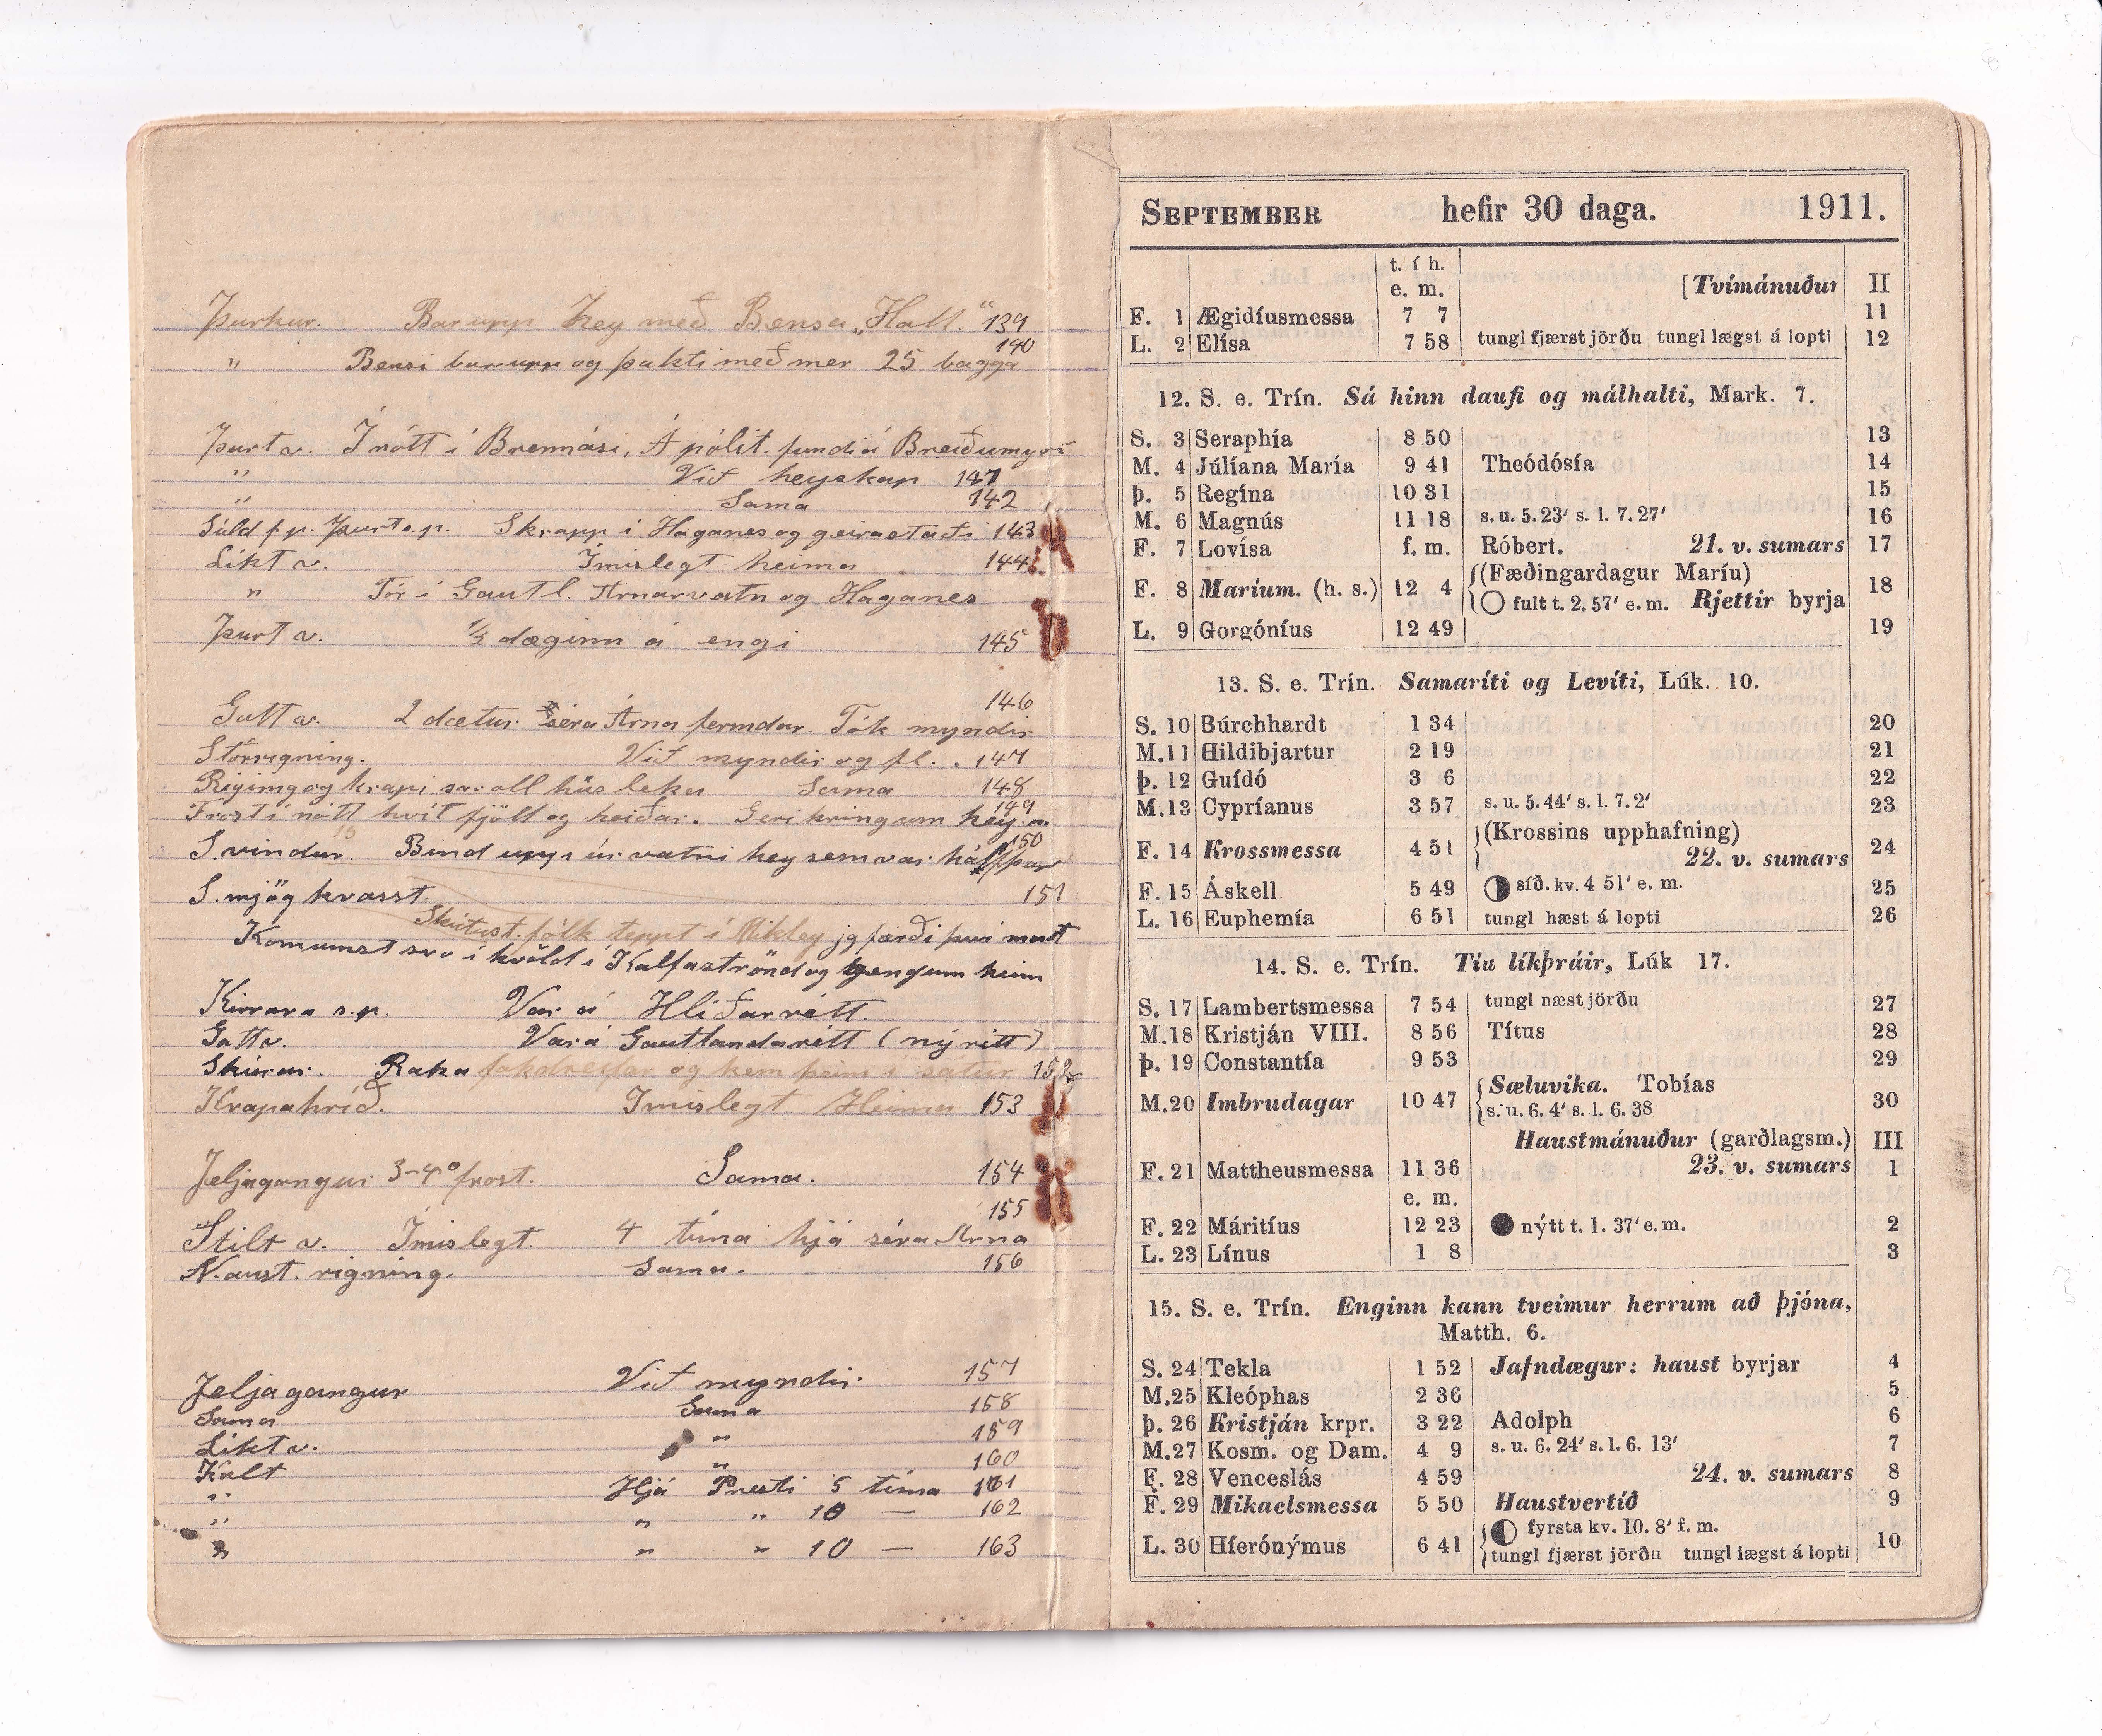 Þurkur. Bar upp hey með Bensa „Hall.“ 139
140
" Bensi bar upp og þakti með mer 25 bagga
Þurt v. Í nótt í Brennási. Á pólit. fundi á Breiðumýri
" Við heyskap 141
" Sama 142
Súld f.p. Þurt e.p. Skrapp í Haganes og geirastaði 143
Líkt v. Ímislegt heima 144
" Fór í Gautl. Arnarvatn og Haganes
Þurt v. 1/2 daginn á engi 145
146
Gott v. 2 dætur séra Árna fermdar. Tók myndir
Stórrigning. Við myndir og fl. 147
Rigning og krapi svo öll hús leka Sama 148
149
Frost í nótt hvít fjöll og heiðar. Geri kringum hey o.
150
S. vindur. Bind upp úr vatni hey sem var hálfþur
S. mjög kvasst. 151
Skútust. fólk teppt í Mikley jg færði því mat
Komumst svo í kvöld í Kalfaströnd og gengum heim
Kirrara s.p. Var á Hlíðarrétt.
Gott v. Var á Gautlandarétt (ný rétt)
Skúrar. Raka og kem þeim í sátur 152
Krapahríð. Imislegt Heima 153
Jeljagangur 3-4° frost. Sama. 154
155
Stilt v. Ímislegt. 4 tíma hjá séra Arna
N.aust. rigning. Sama. 156
Jeljagangur Við myndir. 157
Sama Sama 158
Líkt v. " 159
Kalt " 160
" Hjá Presti 5 tíma 161
" " " 10 — 162
" " " 10 — 163
SEPTEMBER hefir 30 daga. 1911.
t. í h.
e. m. [Tvímánuður II
F. 1 Ægidíusmessa 7 7 11
L. 2 Elísa 7 58 tungl fjærst jörðu tungl lægst á lopti 12
12. S. e. Trín. Sá hinn daufi og málhalti, Mark. 7.
S. 3 Seraphía 8 50 13
M. 4 Júlíana María 9 41 Theódósía 14
Þ. 5 Regína 10 31 15
M. 6 Magnús 11 18 s. u. 5. 23' s. l. 7. 27' 16
F. 7 Lovísa f. m. Róbert. 21. v. sumars 17
F. 8 Maríum. (h. s.) 12 4 (Fæðingardagur Maríu) 18
○ fult t. 2. 57' e. m. Rjettir byrja
L. 9 Gorgóníus 12 49 19
13. S. e. Trín. Samaríti og Levíti, Lúk. 10.
S. 10 Búrchhardt 1 34 20
M. 11 Hildibjartur 2 19 21
Þ. 12 Guídó 3 6 22
M. 13 Cypríanus 3 57 s. u. 5. 44' s. l. 7. 2' 23
F. 14 Krossmessa 4 51 (Krossins upphafning) 24
22. v. sumars
F. 15 Áskell 5 49 síð. kv. 4 51' e. m. 25
L. 16 Euphemía 6 51 tungl hæst á lopti 26
14. S. e. Trín. Tíu líkþráir, Lúk 17.
S. 17 Lambertsmessa 7 54 tungl næst jörðu 27
M. 18 Kristján VIII. 8 56 Títus 28
Þ. 19 Constantía 9 53 29
M. 20 Imbrudagar 10 47 Sæluvika. Tobías 30
s. u. 6. 4' s. l. 6. 38
Haustmánuður (garðlagsm.) III
F. 21 Mattheusmessa 11 36 23. v. sumars 1
e. m.
F. 22 Máritíus 12 23 ● nýtt t. 1. 37' e. m. 2
L. 23 Línus 1 8 3
15. S. e. Trín. Enginn kann tveimur herrum að þjóna,
Matth. 6.
S. 24 Tekla 1 52 Jafndægur: haust byrjar 4
M. 25 Kleóphas 2 36 5
Þ. 26 Kristján krpr. 3 22 Adolph 6
M. 27 Kosm. og Dam. 4 9 s. u. 6. 24' s. l. 6. 13' 7
F. 28 Venceslás 4 59 24. v. sumars 8
F. 29 Mikaelsmessa 5 50 Haustvertíð 9
L. 30 Híerónýmus 6 41 fyrsta kv. 10. 8' f. m. 10
tungl fjærst jörðu tungl lægst á lopti